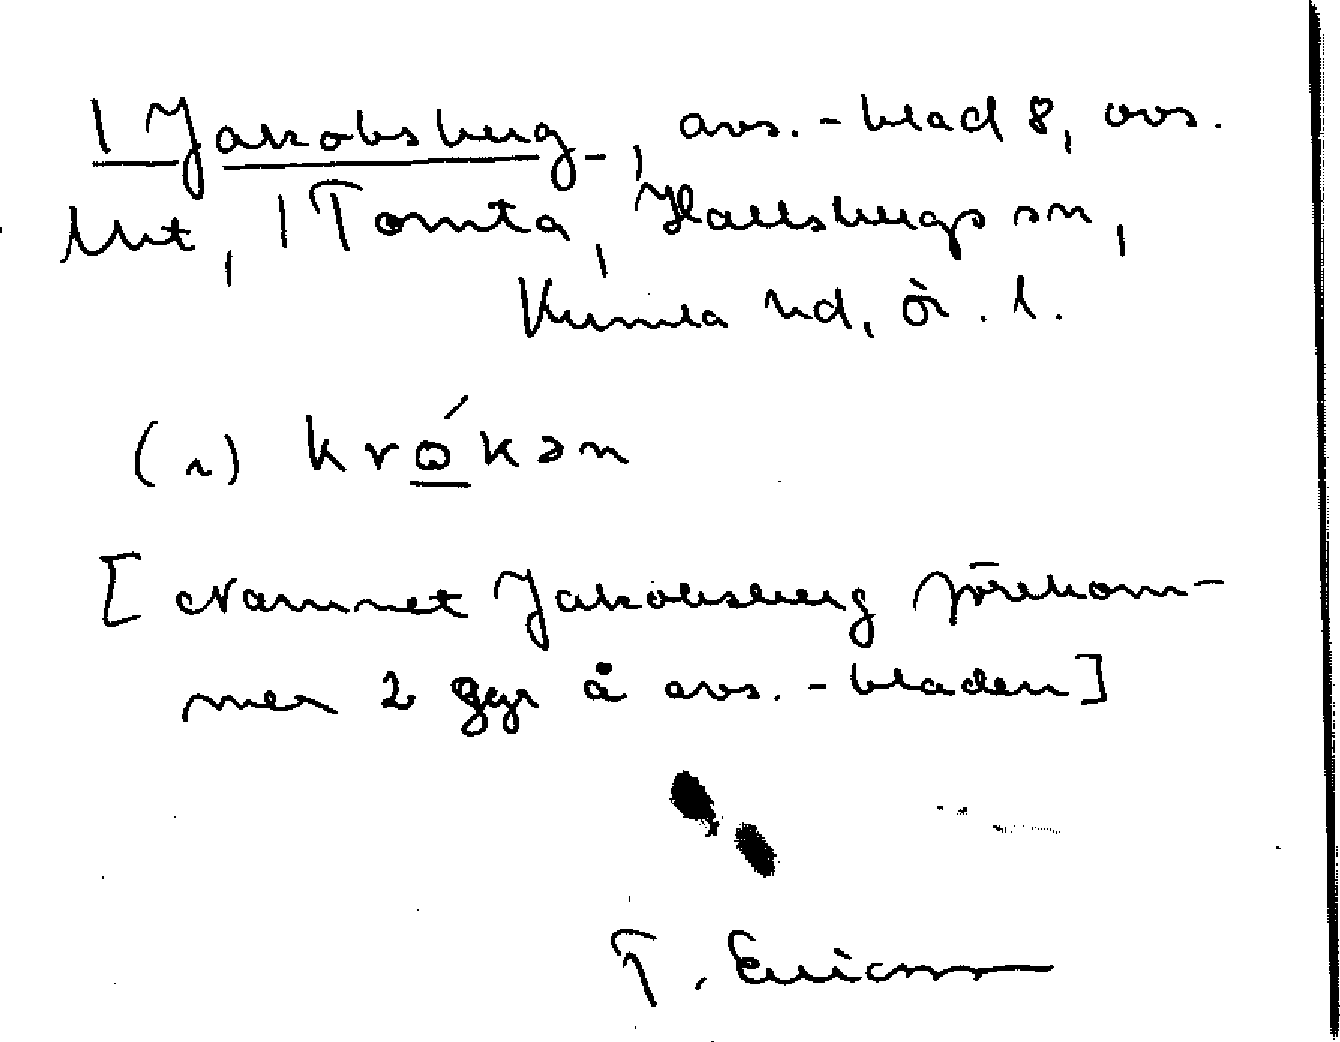 1 Jakobsberg, avs.-blad 8, avs.
Utt, 1 Tomta, Hallsbergs sn,
Kumla hd, Ör. l.
(n) kró̲kən
[Namnet Jakobsberg förekom-
mer 2 ggr å avs.-bladen]
T. Ericsson